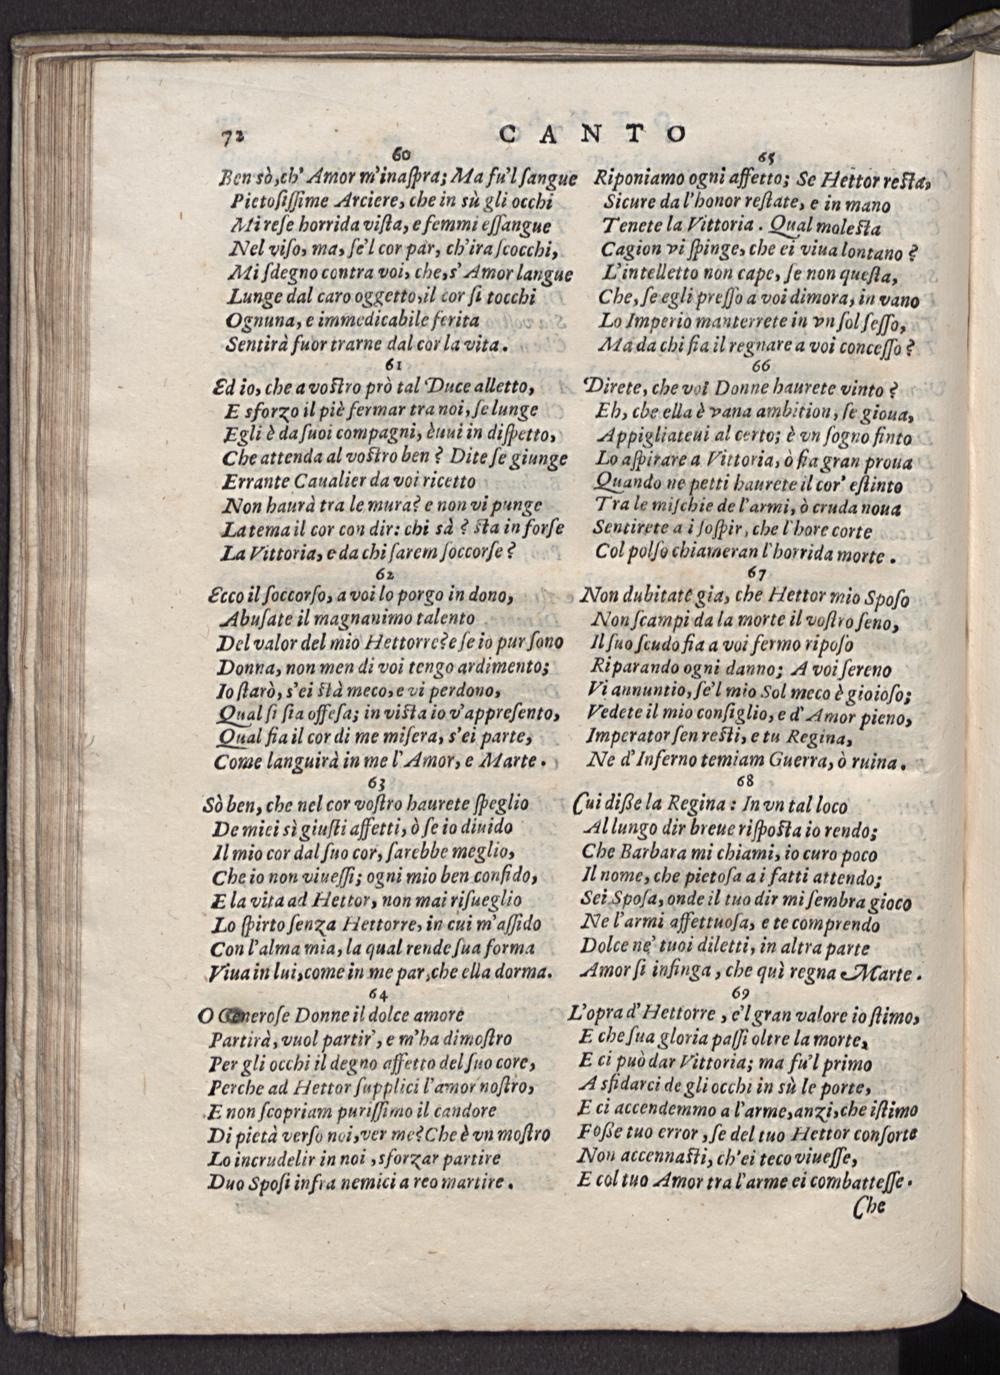 72
CANTO
60
Ben sò, ch' Amor m'inaſpra; Ma fu'l ſangue
Pietoſiſſime Arciere, che in sù gli occhi
Mi reſe horrida viſta, e femmi eſſangue
Nel viſo, ma, ſe'l cor par, ch'ira ſcocchi,
Mi ſdegno contra voi, che, s' Amor langue
Lunge dal caro oggetto, il cor ſi tocchi
Ognuna, e immedicabile ferita
Sentirà fuor trarne dal cor la vita.
61
Ed io, che a voſtro prò tal Duce alletto,
E sforzo il piè fermar tra noi, ſe lunge
Egli è da ſuoi compagni, èuui in diſpetto,
Che attenda al voſtro ben? Dite ſe giunge
Errante Caualier da voi ricetto
Non haurà tra le mura? e non vi punge
La tema il cor con dir: chi sà? ſta in forſe
La Vittoria, e da chi ſarem ſoccorſe?
62
Ecco il ſoccorſo, a voi lo porgo in dono,
Abuſate il magnanimo talento
Del valor del mio Hettorre? e ſe io pur ſono
Donna, non men di voi tengo ardimento;
Io ſtarò, s'ei ſtà meco, e vi perdono,
Qual ſi ſia offeſa; in viſta io v'appreſento,
Qual fia il cor di me miſera, s'ei parte,
Come languirà in me l'Amor, e Marte.
63
Sò ben, che nel cor voſtro haurete ſpeglio
De miei sì giuſti affetti, ò ſe io diuido
Il mio cor dal ſuo cor, ſarebbe meglio,
Che io non viueſſi; ogni mio ben confido,
E la vita ad Hettor, non mai riſueglio
Lo ſpirto ſenza Hettorre, in cui m'aſſido
Con l'alma mia, la qual rende ſua forma
Viua in lui, come in me par, che ella dorma.
64
O Generoſe Donne il dolce amore
Partirà, vuol partir', e m'ha dimoſtro
Per gli occhi il degno affetto del ſuo core,
Perche ad Hettor ſupplici l'amor noſtro,
E non ſcopriam puriſſimo il candore
Di pietà verſo noi, ver me? Che è vn moſtro
Lo incrudelir in noi, sforzar partire
Duo Spoſi infra nemici a reo martire.
65
Riponiamo ogni affetto; Se Hettor reſta,
Sicure da l'honor reſtate, e in mano
Tenete la Vittoria. Qual moleſta
Cagion vi ſpinge, che ei viua lontano?
L'intelletto non cape, ſe non queſta,
Che, ſe egli preſſo a voi dimora, in vano
Lo Imperio manterrete in vn ſol ſeſſo,
Ma da chi fia il regnare a voi conceſſo?
66
Direte, che voi Donne haurete vinto?
Eh, che ella è vana ambition, ſe gioua,
Appigliateui al certo; è vn ſogno finto
Lo aſpirare a Vittoria, ò fia gran proua
Quando ne petti haurete il cor' eſtinto
Tra le miſchie de l'armi, ò cruda noua
Sentirete a i ſoſpir, che l'hore corte
Col polſo chiameran l'horrida morte.
67
Non dubitate gia, che Hettor mio Spoſo
Non ſcampi da la morte il voſtro ſeno,
Il ſuo ſcudo fia a voi fermo ripoſo
Riparando ogni danno; A voi ſereno
Vi annuntio, ſe'l mio Sol meco è gioioſo;
Vedete il mio conſiglio, e d'Amor pieno,
Imperator ſen reſti, e tu Regina,
Ne d'Inferno temiam Guerra, ò ruina.
68
Cui diſſe la Regina: In vn tal loco
Al lungo dir breue riſpoſta io rendo;
Che Barbara mi chiami, io curo poco
Il nome, che pietoſa a i fatti attendo;
Sei Spoſa, onde il tuo dir mi ſembra gioco
Ne l'armi affettuoſa, e te comprendo
Dolce ne' tuoi diletti, in altra parte
Amor ſi infinga, che quì regna Marte.
69
L'opra d'Hettorre, e'l gran valore io ſtimo,
E che ſua gloria paſſi oltre la morte,
E ci può dar Vittoria; ma fu'l primo
A sfidarci de gli occhi in sù le porte,
E ci accendemmo a l'arme, anzi, che iſtimo
Foſſe tuo error, ſe del tuo Hettor conſorte
Non accennaſti, ch'ei teco viueſſe,
E col tuo Amor tra l'arme ei combatteſſe.
Che